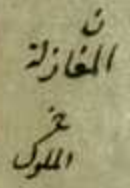 ن
المغازلة
خ
الملوك